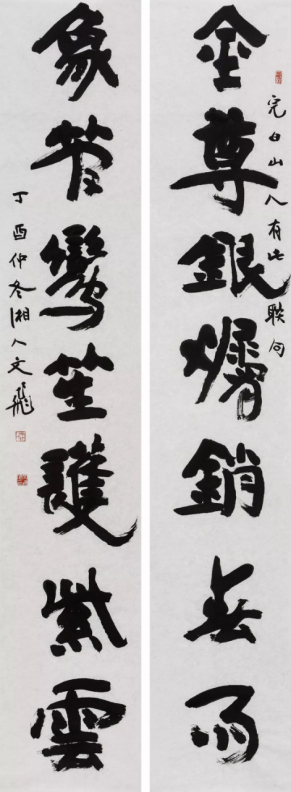 金尊銀燭銷春雨
完白山人有此聯句
象管鸞笙護紫雲
丁酉仲冬湘人文飛